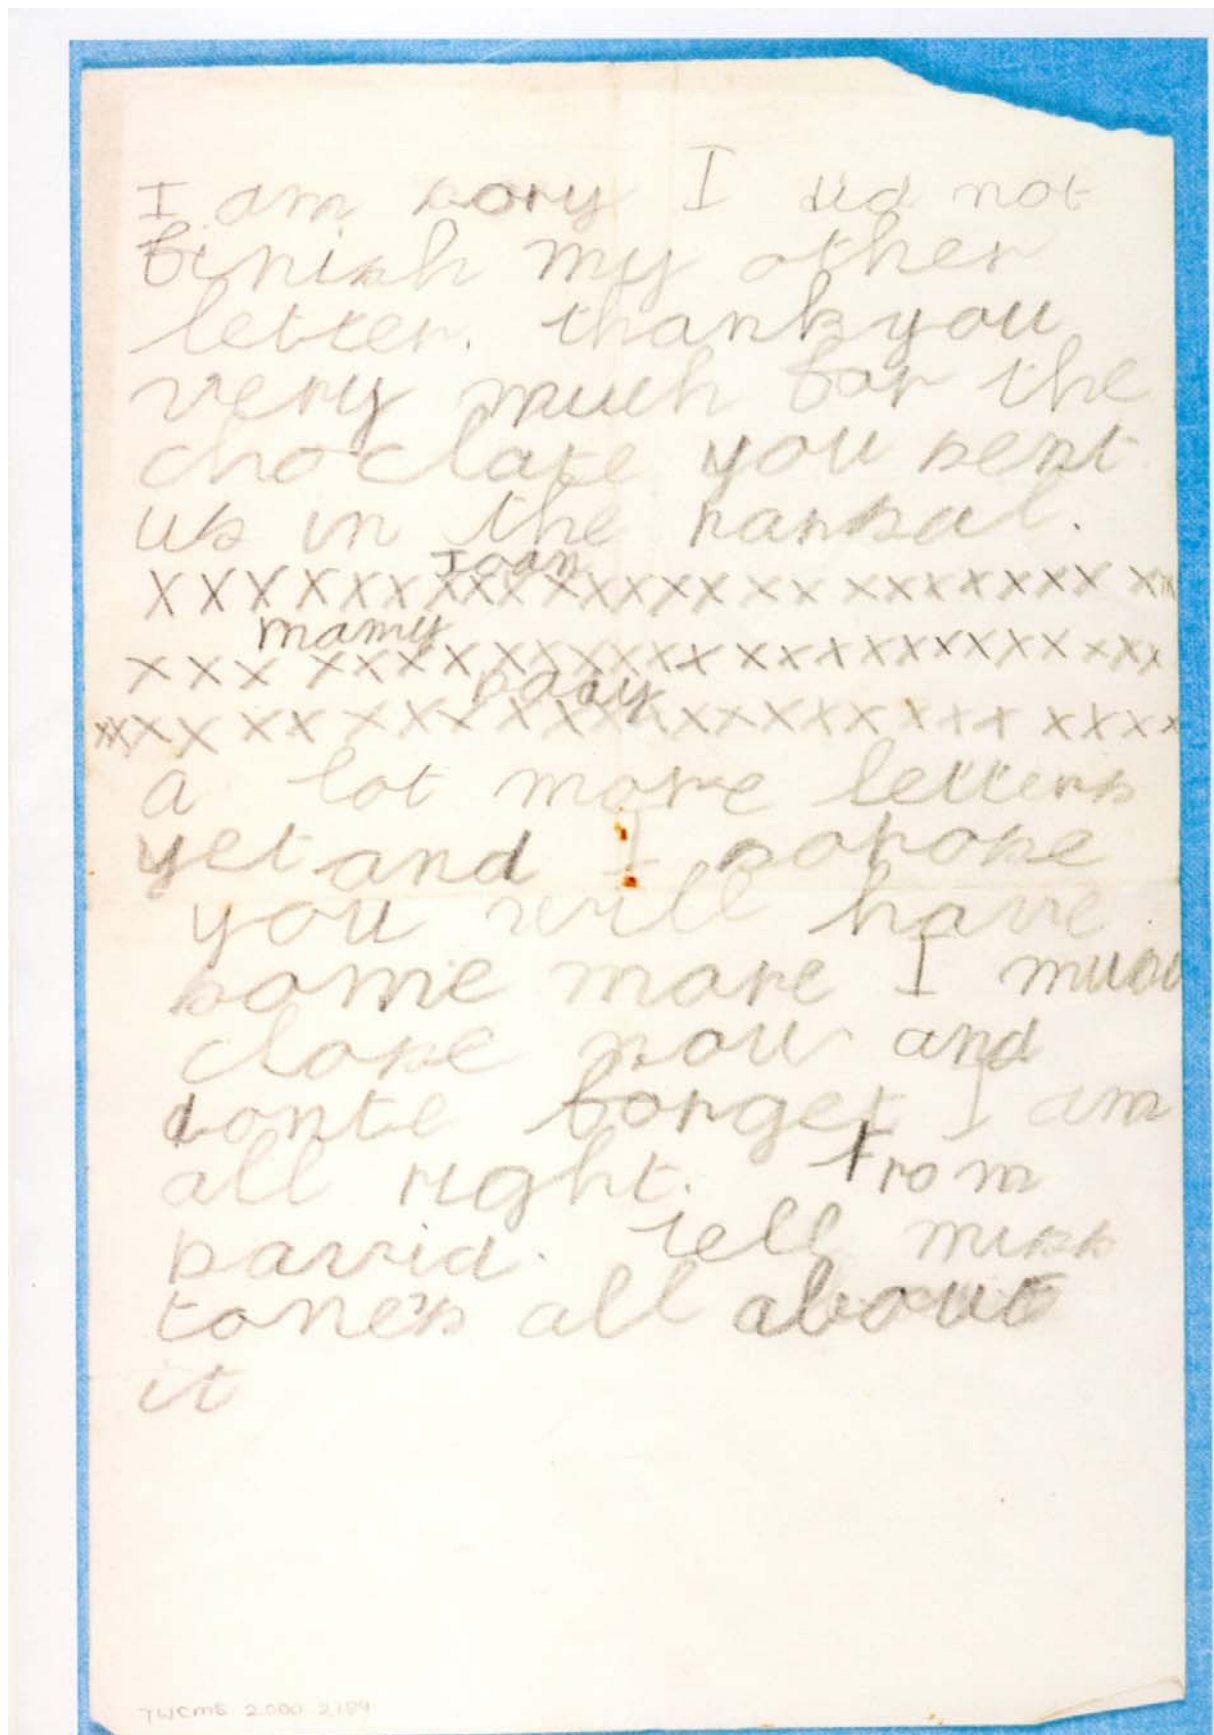 I am sory I did not
finish my other
letter. thankyou
very much for the
choclate you sent
us in the parsal.
Joan
XXXXXXXXXXXXXXXXXXXXXXX
mamy
XXXXXXXXXXXXXXXXXXXXXXX
Dady
XXXXXXXXXXXXXXXXXXXXXXX
a lot more letters
yet and I sopose
you will have
some more I
close now and
donte forget I am
all right. From
David. tell miss
all about
it
TWCMS 2000.2189